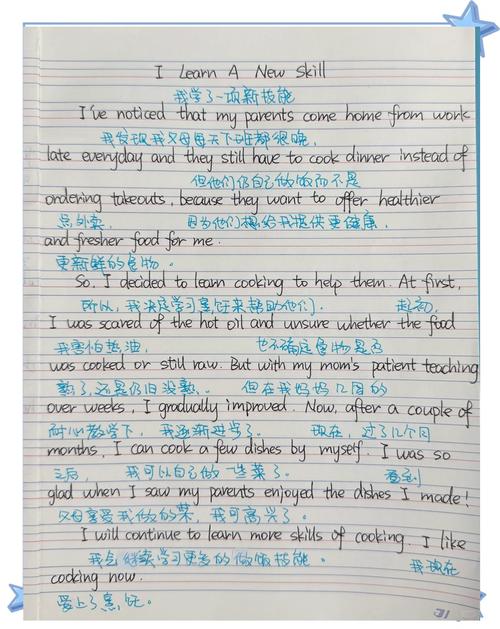 I Learn A New Skill
我学了一项新技能
I've noticed that my parents come home from work
我发现我父母每天下班都很晚,
late everyday and they still have to cook dinner instead of
但他们仍自己做饭而不是
ordering takeouts, because they want to offer healthier
点外卖, 因为他们想给我提供更健康,
and fresher food for me.
更新鲜的食物。
So, I decided to learn cooking to help them. At first,
所以,我决定学习烹饪来帮助他们. 起初,
I was scared of the hot oil and unsure whether the food
我害怕热油, 也不确定食物是否
was cooked or still raw. But with my mom's patient teaching
熟了,还是仍旧没熟. 但在我妈妈几周的
over weeks, I gradually improved. Now, after a couple of
耐心教学下, 我逐渐进步了. 现在, 过了几个月
months, I can cook a few dishes by myself. I was so
之后, 我可以自己做一些菜了. 看到
glad when I saw my parents enjoyed the dishes I made!
父母享受我做的菜, 我可高兴了.
I will continue to learn more skills of cooking. I like
我会继续学习更多的做饭技能. 我现在
cooking now.
爱上了烹饪.